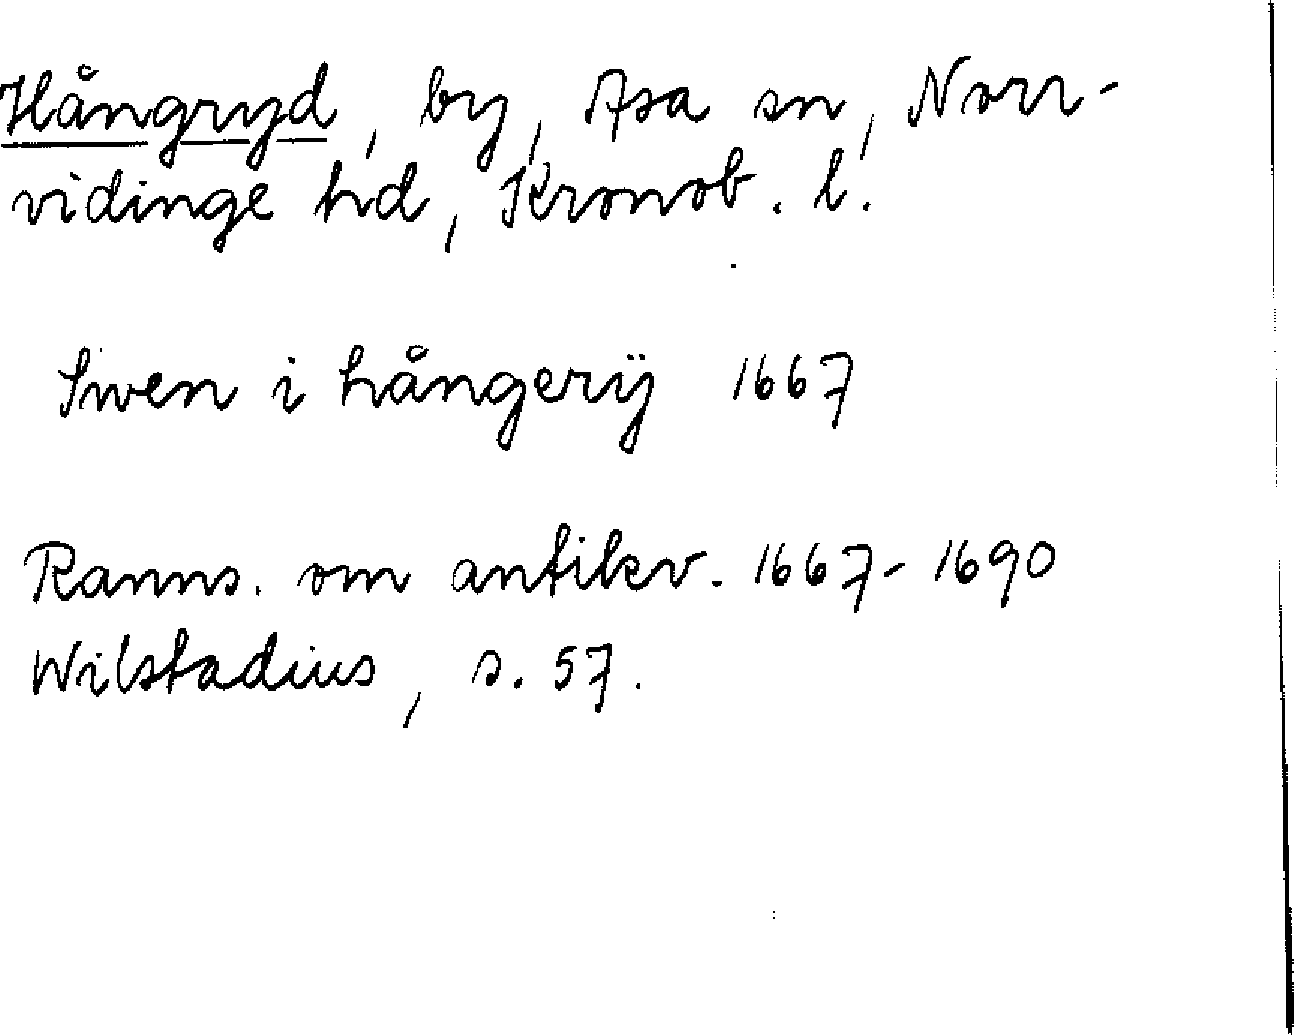 Hångryd, by, Asa sn, Norr-
vidinge hd, Kronob. l.
Swen i hångerÿ 1667
Ranns. om antikv. 1667-1690
Wilstadius, s. 57.